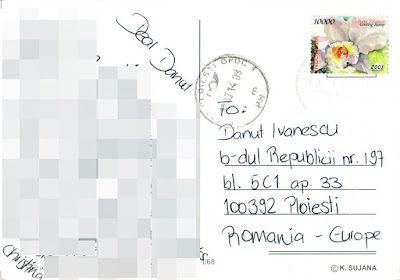 Dear Danut
10000
2003
PLOIESTI OPDC 1
03 14 09
PM
To:
Danut Ivanescu
b-dul Republicii nr. 197
bl. 5C1 ap. 33
100392 Ploiesti
Romania - Europe
Christina
068
© K. SUJANA